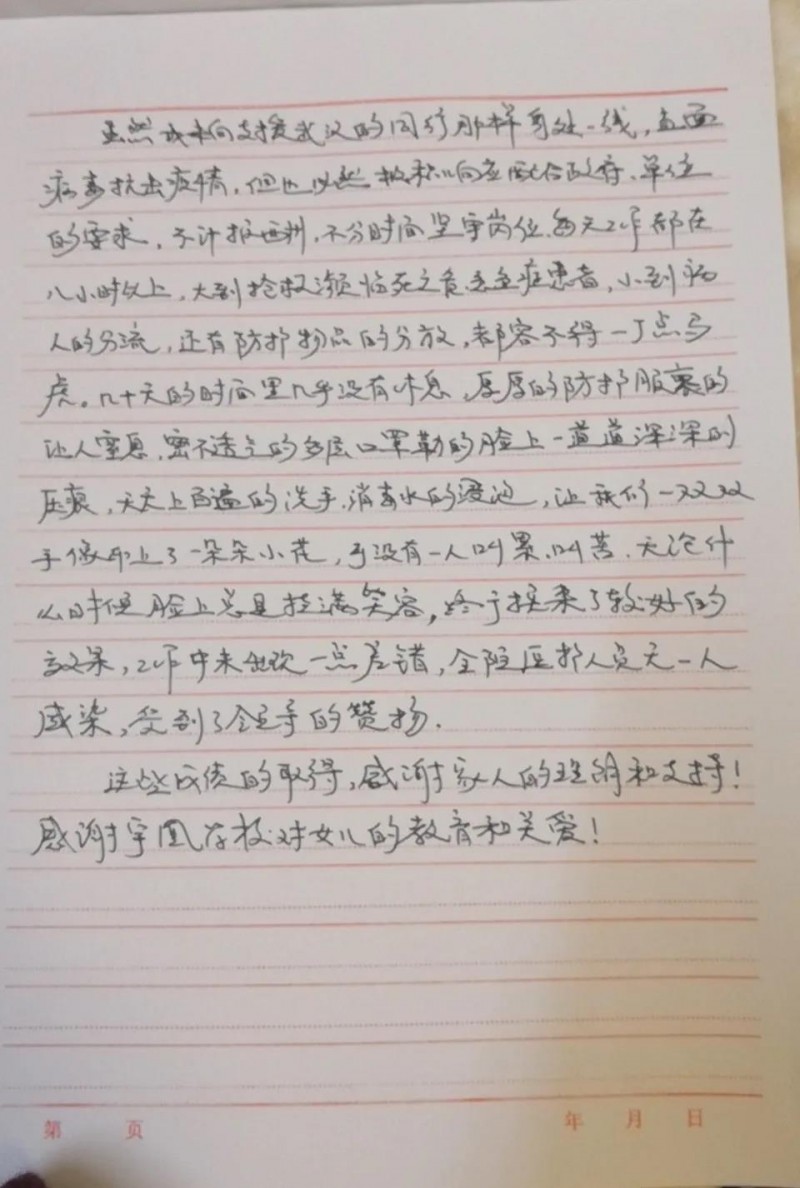 虽然我未向支援武汉的同行那样身处一线，直面
病毒抗击疫情，但也以然积极响应配合政府、单位
的要求，不计报酬，不分时间坚守岗位，每天工作都在
八小时以上，大到抢救濒临死之危急症患者，小到病
人的分流，还有防护物品的分放，都容不得一丁点马
虎。几十天的时间里几乎没有休息，厚厚的防护服裹的
让人窒息，密不透气的多层口罩勒的脸上一道道深深的
压痕，天天上百遍的洗手，消毒水的浸泡，让我们一双双
手像印上了一朵朵小花，可没有一人叫累、叫苦，无论什
么时候脸上总是挂满笑容，终于换来了较好的
效果，工作中未出现一点差错，全院医护人员无一人
感染，受到了领导的赞扬。
这些成绩的取得，感谢家人的理解和支持！
感谢宇凰学校对女儿的教育和关爱！
第 页 年 月 日